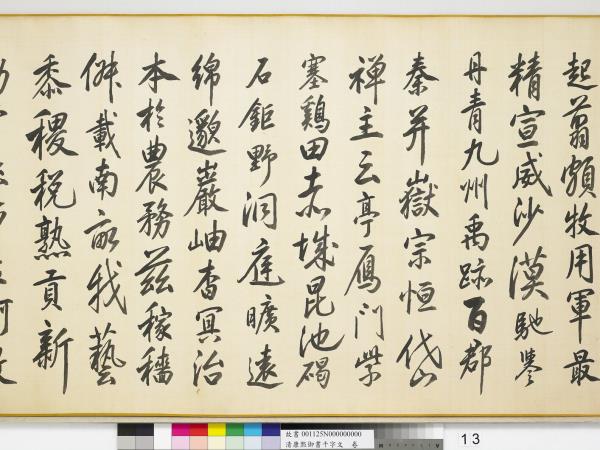 起翦頗牧用軍最
精宣威沙漠馳譽
丹青九州禹跡百郡
秦并嶽宗恒岱
禪主云亭雁門紫
塞鷄田赤城昆池碣
石鉅野洞庭曠遠
綿邈巖岫杳冥治
本於農務茲稼穡
俶載南畝我藝
黍稷稅熟貢新
故書 001125N000000000
清康熙御書千字文 卷
13